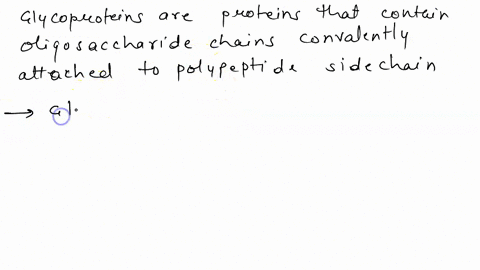 Glycoproteins are proteins that contain
oligosaccharide chains convalently
attached to polypeptide sidechain
→ Gl